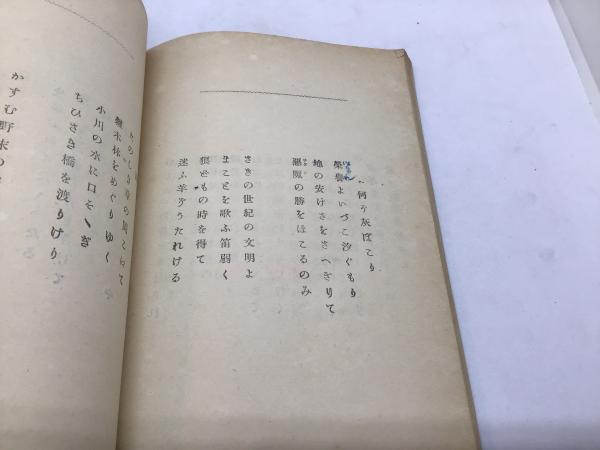 何ぞ灰ぼこり
よいづこ汐ぐもり
地の安けさをさへぎりて
惡魔の勝をほこるのみ
さきの世紀の文明よ
まことを歌ふ笛弱く
狼どもの時を得て
迷ふ羊ぞうたれける
林をめぐりゆく
小川の水に口そゝぎ
ちひさき橋を渡りけり
かすむ野末の